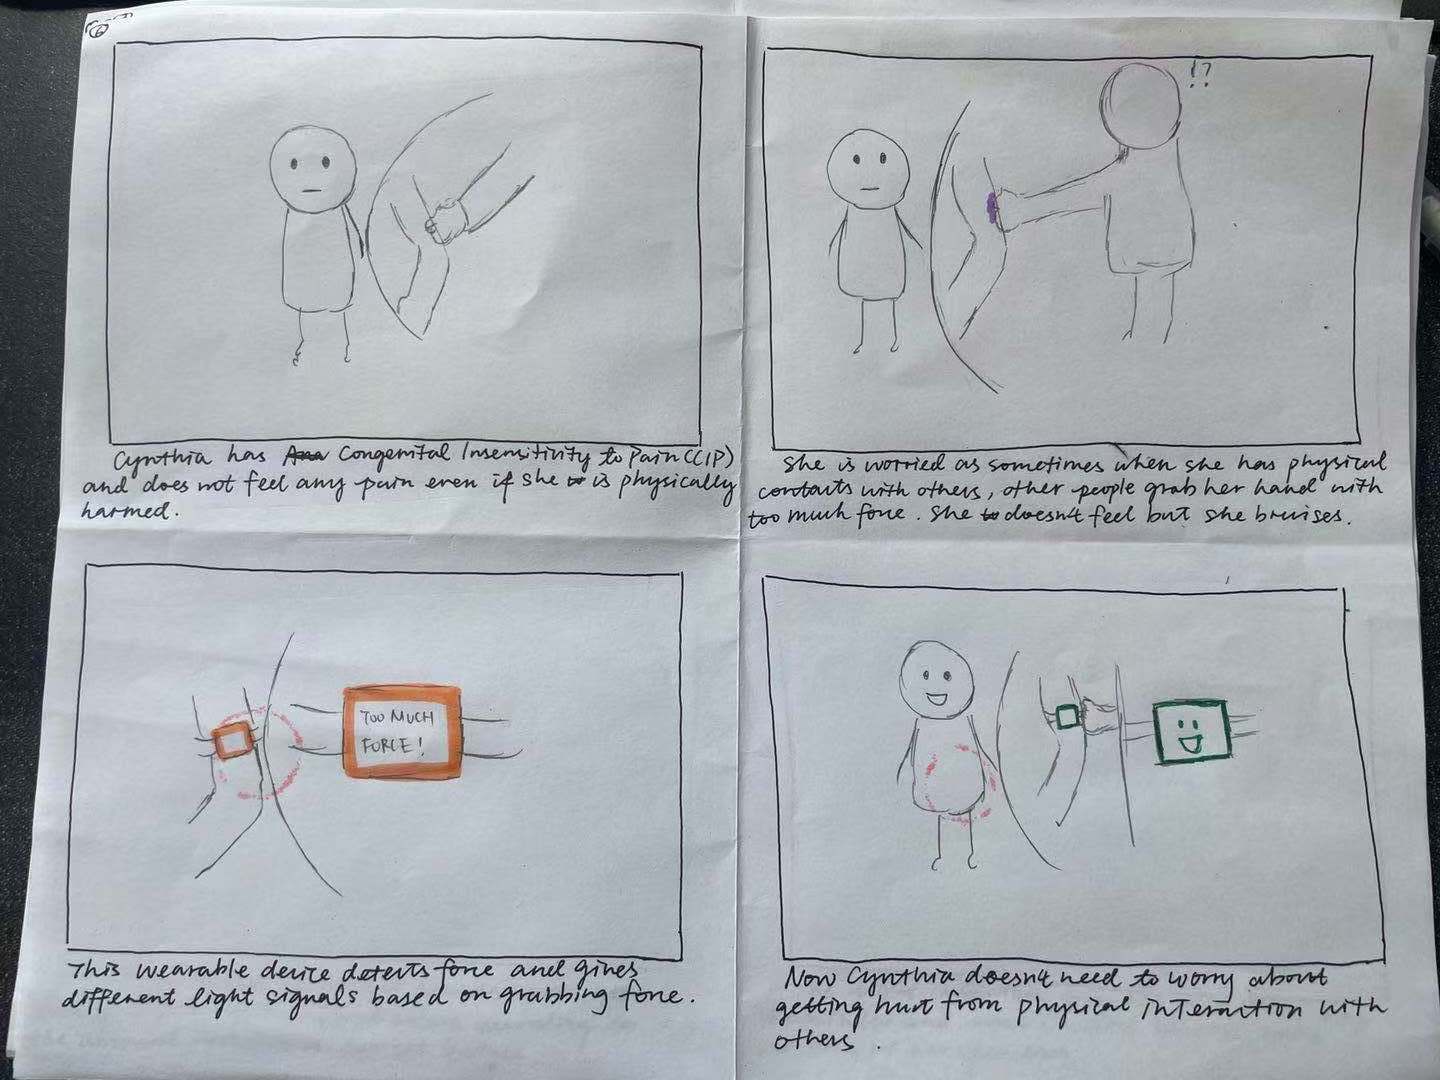 6
Cynthia has Ana Congenital Insensitivity to Pain (CIP)
and does not feel any pain even if she is physically
harmed.
!?
She is worried as sometimes when she has physical
contacts with others, other people grab her hand with
too much force. She doesn't feel but she bruises.
TOO MUCH
FORCE!
This wearable device detects force and gives
different light signals based on grabbing force.
Now Cynthia doesn't need to worry about
getting hurt from physical interaction with
others.